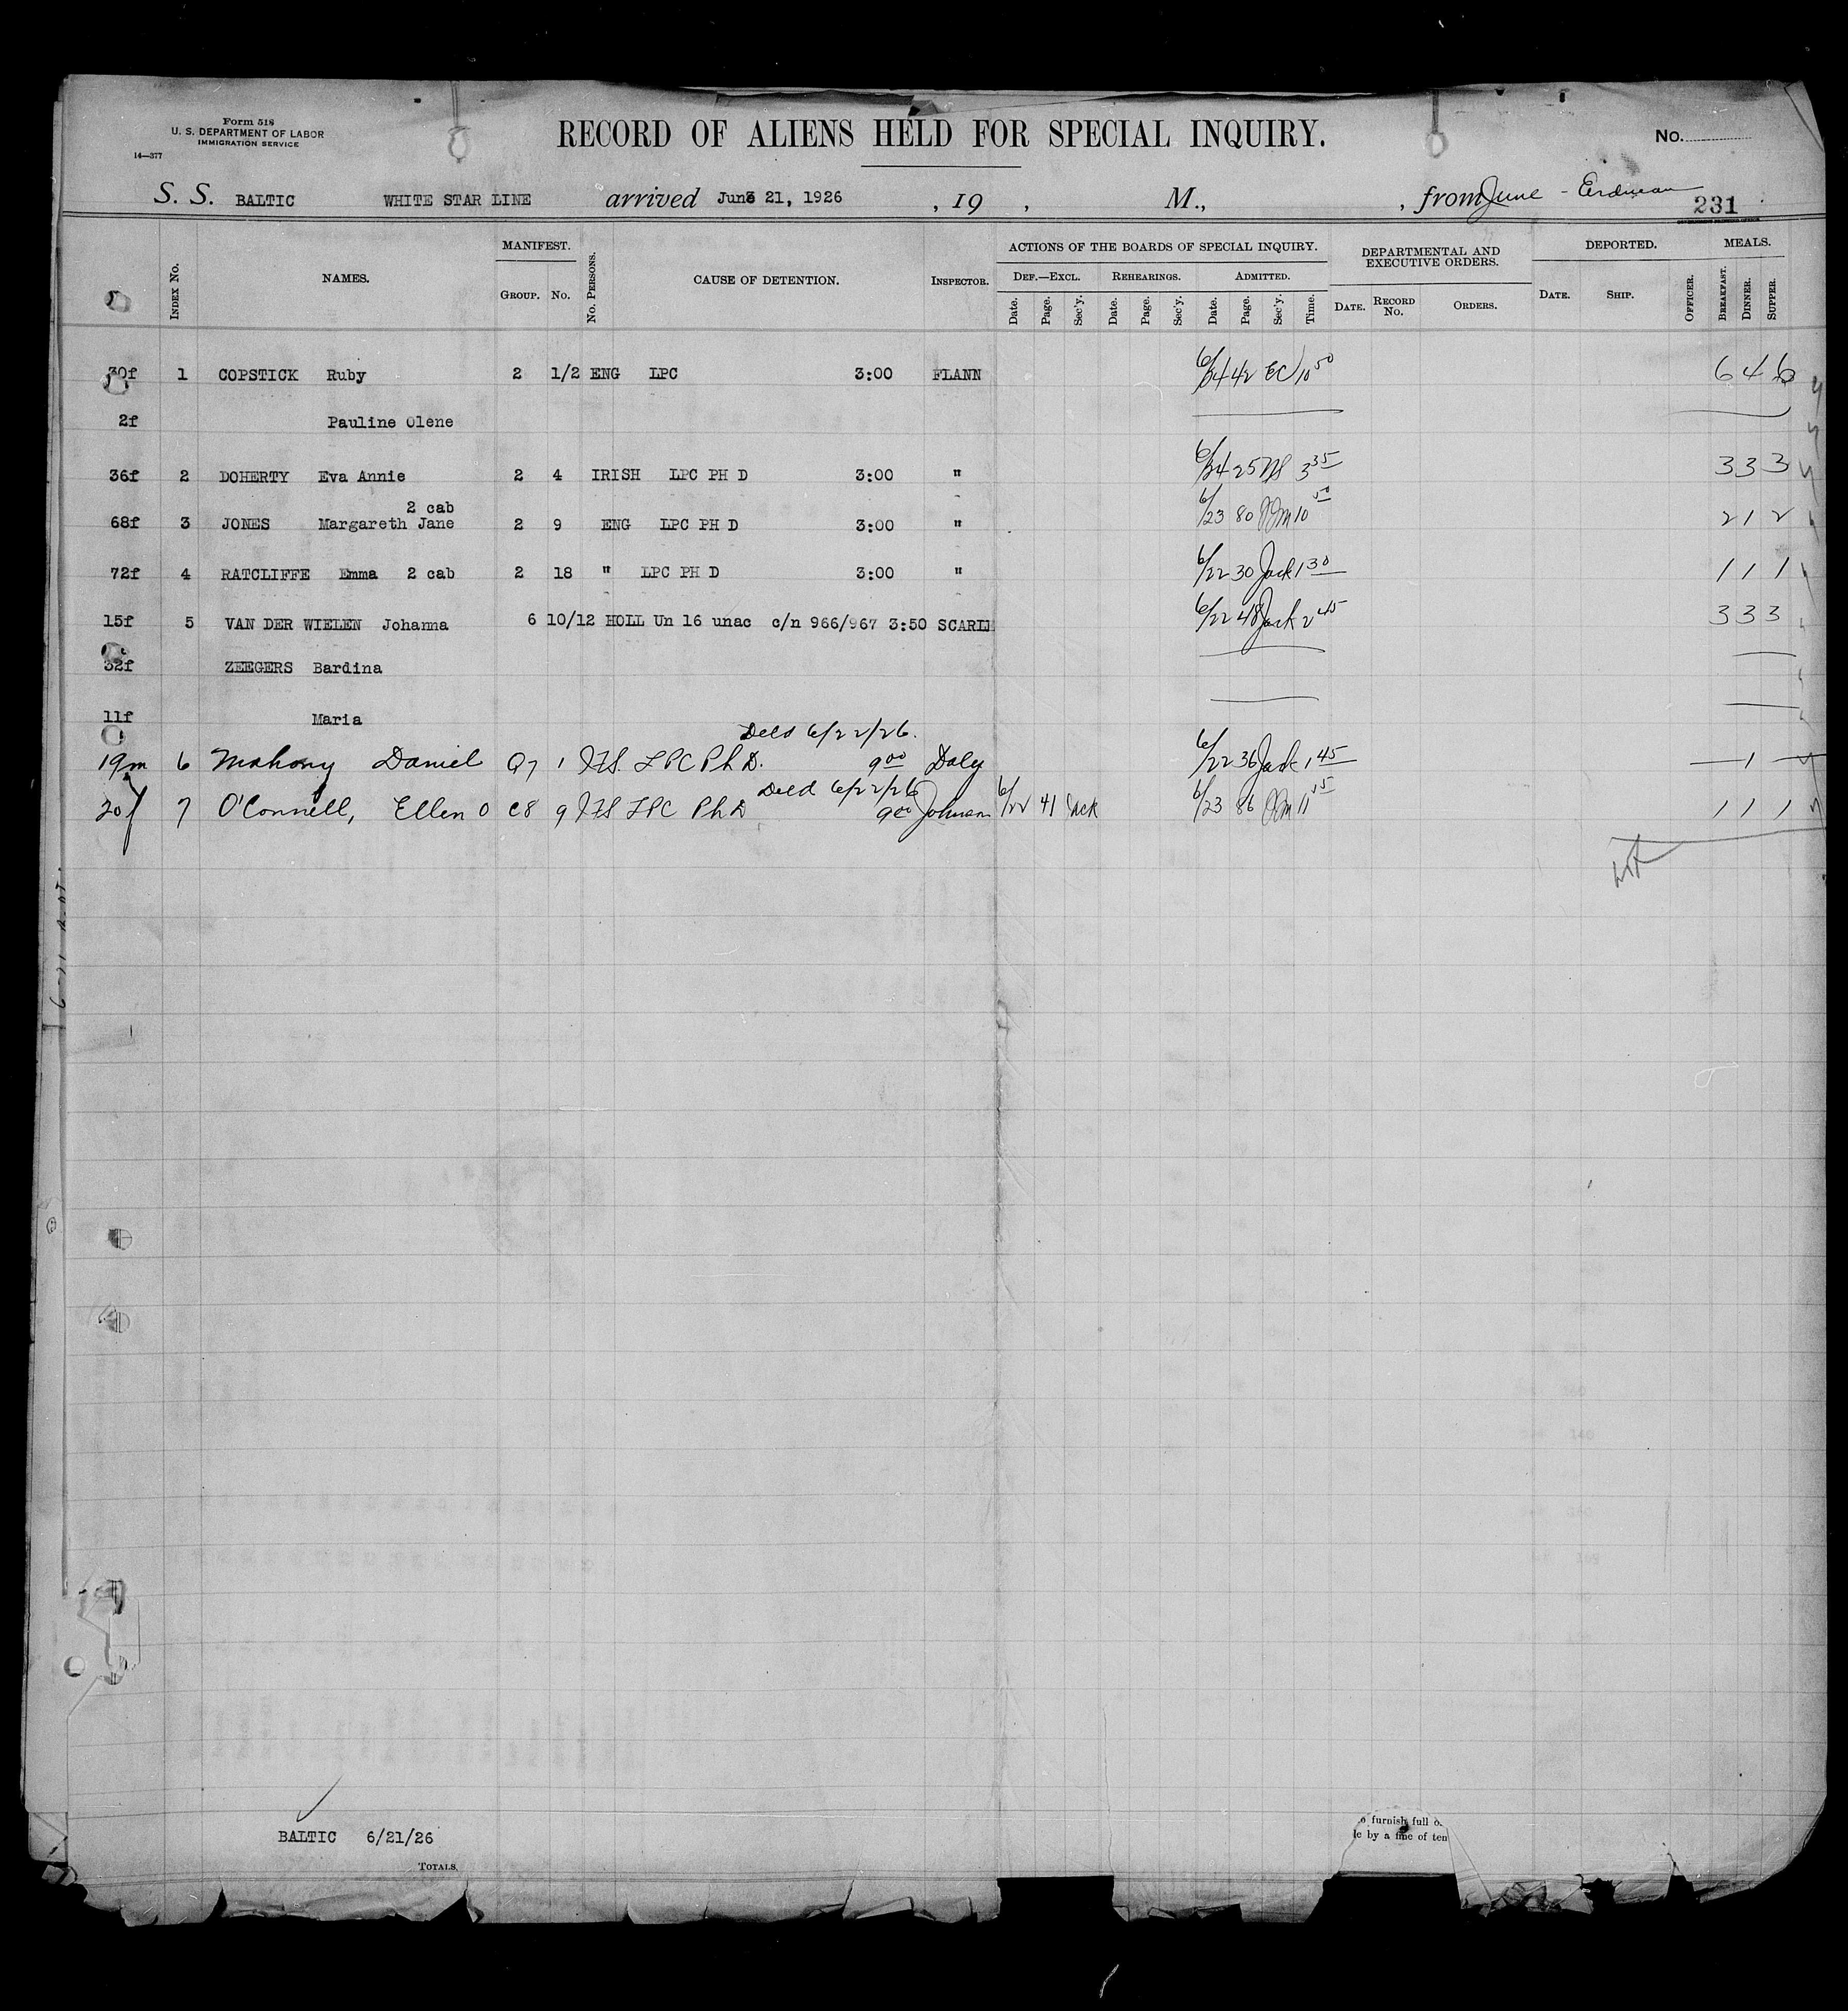 Form 518
U. S. DEPARTMENT OF LABOR
IMMIGRATION SERVICE
14—377
RECORD OF ALIENS HELD FOR SPECIAL INQUIRY.
No.
S. S. BALTIC WHITE STAR LINE arrived June 21, 1926 , 19 , M., , from June -
231
INDEX No. NAMES. MANIFEST. GROUP. No. No. PERSONS. CAUSE OF DETENTION. INSPECTOR. ACTIONS OF THE BOARDS OF SPECIAL INQUIRY. DEPARTMENTAL AND EXECUTIVE ORDERS. DEPORTED. MEALS.
DEF.—EXCL. REHEARINGS. ADMITTED.
Date. Page. Sec'y. Date. Page. Sec'y. Date. Page. Sec'y. Time. DATE. RECORD No. ORDERS. DATE. SHIP. OFFICER. BREAKFAST. DINNER. SUPPER.
30f 1 COPSTICK Ruby 2 1/2 ENG LPC 3:00 FLANN 6/24 42 EC 10 50 6 4 6
2f Pauline Olene
36f 2 DOHERTY Eva Annie 2 4 IRISH LPC PH D 3:00 " 6/24 25 3 35 3 3 3
2 cab
68f 3 JONES Margareth Jane 2 9 ENG LPC PH D 3:00 " 6/23 80 10 50 2 1 2
72f 4 RATCLIFFE Emma 2 cab 2 18 " LPC PH D 3:00 " 6/22 30 Jack 1 30 1 1 1
15f 5 VAN DER WIELEN Johanna 6 10/12 HOLL Un 16 unac c/n 966/967 3:50 SCARLE 6/22 48 Jack 2 45 3 3 3
32f ZEEGERS Bardina
11f Maria
Held 6/22/26.
19m 6 Mahony Daniel Q7 1 LPC Ph D. 9 00 Daly 6/22 36 Jack 1 45 — 1 —
Held 6/22/26
20f 7 O'Connell, Ellen O C8 9 LPC Ph D 9 00 Johnson 6/22 41 Jack 6/23 86 11 15 1 1 1
BALTIC 6/21/26
TOTALS,
o furnish full
le by a fine of ten